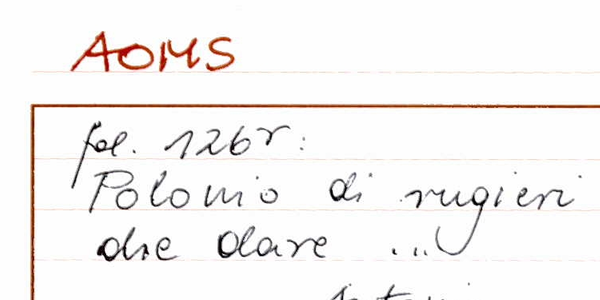 AOMS
fol. 126r:
Polonio di rugieri
die dare ...